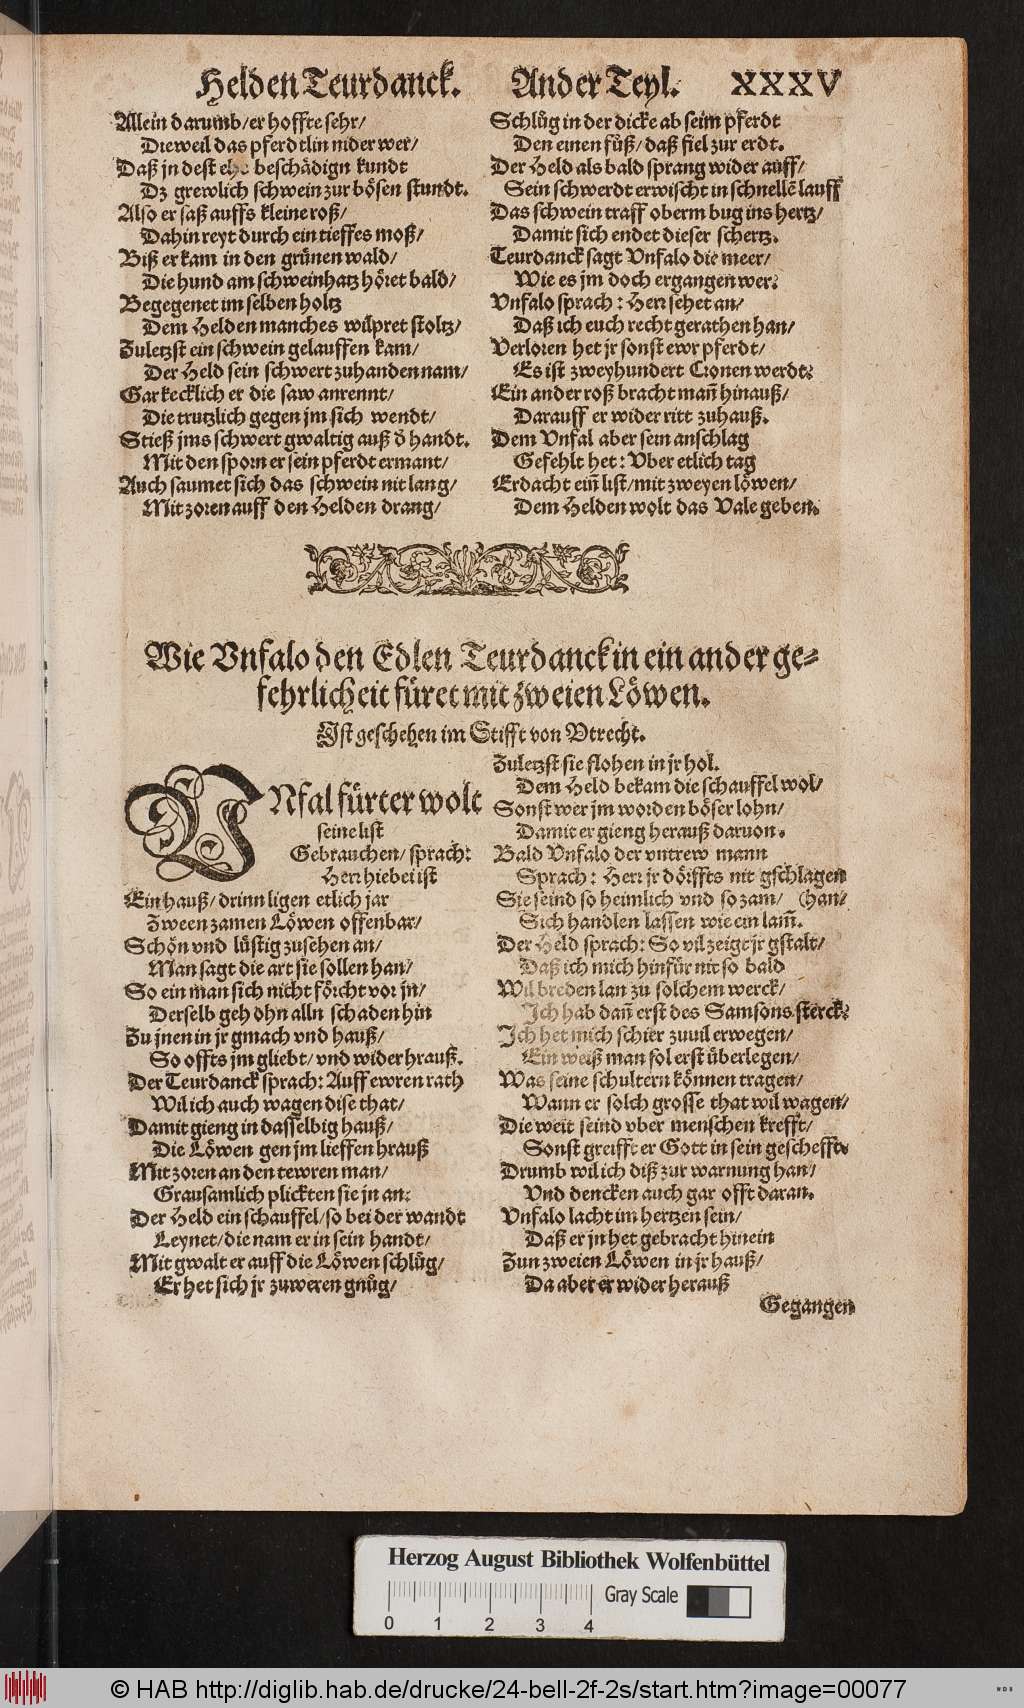 Helden Teurdanck. Ander Teyl. XXXV
Allein darumb/ er hoffte sehr/
Dieweil das pferdtlin nider wer/
Daß jn dest ehe beschädign kundt
Dz grewlich schwein zur bösen stundt.
Also er saß auffs kleine roß/
Dahin reyt durch ein tieffes moß/
Biß er kam in den grünen wald/
Die hund am schweinhatz höret bald/
Begegenet im selben holtz
Dem Helden manches wilpret stoltz/
Zuletzst ein schwein gelauffen kam/
Der Held sein schwert zuhanden nam/
Gar kecklich er die saw anrennt/
Die trutzlich gegen jm sich wendt/
Stieß jms schwert gwaltig auß d̓ handt.
Mit den sporn er sein pferdt ermant/
Auch saumet sich das schwein nit lang/
Mit zoren auff den Helden drang/
Schlůg in der dicke ab seim pferdt
Den einen fůß/ daß fiel zur erdt.
Der Held als bald sprang wider auff/
Sein schwerdt erwischt in schnellē lauff
Das schwein traff oberm bug ins hertz/
Damit sich endet dieser schertz.
Teurdanck sagt Vnfalo die meer/
Wie es jm doch ergangen wer:
Vnfalo sprach: Herr sehet an/
Daß ich euch recht gerathen han/
Verloren het jr sonst ewr pferdt/
Es ist zweyhundert Cronen werdt:
Ein ander roß bracht mañ hinauß/
Darauff er wider ritt zuhauß.
Dem Vnfal aber sein anschlag
Gefehlt het: Vber etlich tag
Erdacht eiñ list/ mit zweyen löwen/
Dem Helden wolt das Vale geben.
Wie Vnfalo den Edlen Teurdanck in ein ander ge=
fehrlicheit füret mit zweien Löwen.
Ist geschehen im Stifft von Vtrecht.
VNfal fürter wolt
seine list
Gebrauchen/ sprach:
Herr hiebei ist
Ein hauß/ drinn ligen etlich jar
Zween zamen Löwen offenbar/
Schön vnd lüstig zusehen an/
Man sagt die art sie sollen han/
So ein man sich nicht förcht vor jn/
Derselb geh ohn alln schaden hin
Zu jnen in jr gmach vnd hauß/
So offts jm gliebt/ vnd wider hrauß.
Der Teurdanck sprach: Auff ewren rath
Wil ich auch wagen dise that/
Damit gieng in dasselbig hauß/
Die Löwen gen jm lieffen hrauß
Mit zoren an den tewren man/
Grausamlich plickten sie jn an:
Der Held ein schauffel/ so bei der wandt
Leynet/ die nam er in sein handt/
Mit gwalt er auff die Löwen schlůg/
Er het sich jr zuweren gnůg/
Zuletzst sie flohen in jr hol.
Dem Held bekam die schauffel wol/
Sonst wer jm worden böser lohn/
Damit er gieng herauß daruon.
Bald Vnfalo der vntrew mann
Sprach: Herr jr dörffts nit gschlagen
Sie seind so heimlich vnd so zam/ (han/
Sich handlen lassen wie ein lam̃.
Der Held sprach: So vil zeigt jr gstalt/
Daß ich mich hinfür nit so bald
Wil breden lan zu solchem werck/
Ich hab dañ erst des Samsons sterck:
Ich het mich schier zuuil erwegen/
Ein weiß man sol erst überlegen/
Was seine schultern können tragen/
Wann er solch grosse that wil wagen/
Die weit seind vber menschen krefft/
Sonst greifft er Gott in sein gescheffte.
Drumb wil ich diß zur warnung han/
Vnd dencken auch gar offt daran.
Vnfalo lacht im hertzen sein/
Daß er jn het gebracht hinein
Zun zweien Löwen in jr hauß/
Da aber er wider herauß
Gegangen
Herzog August Bibliothek Wolfenbüttel
Gray Scale
0 1 2 3 4
© HAB http://diglib.hab.de/drucke/24-bell-2f-2s/start.htm?image=00077